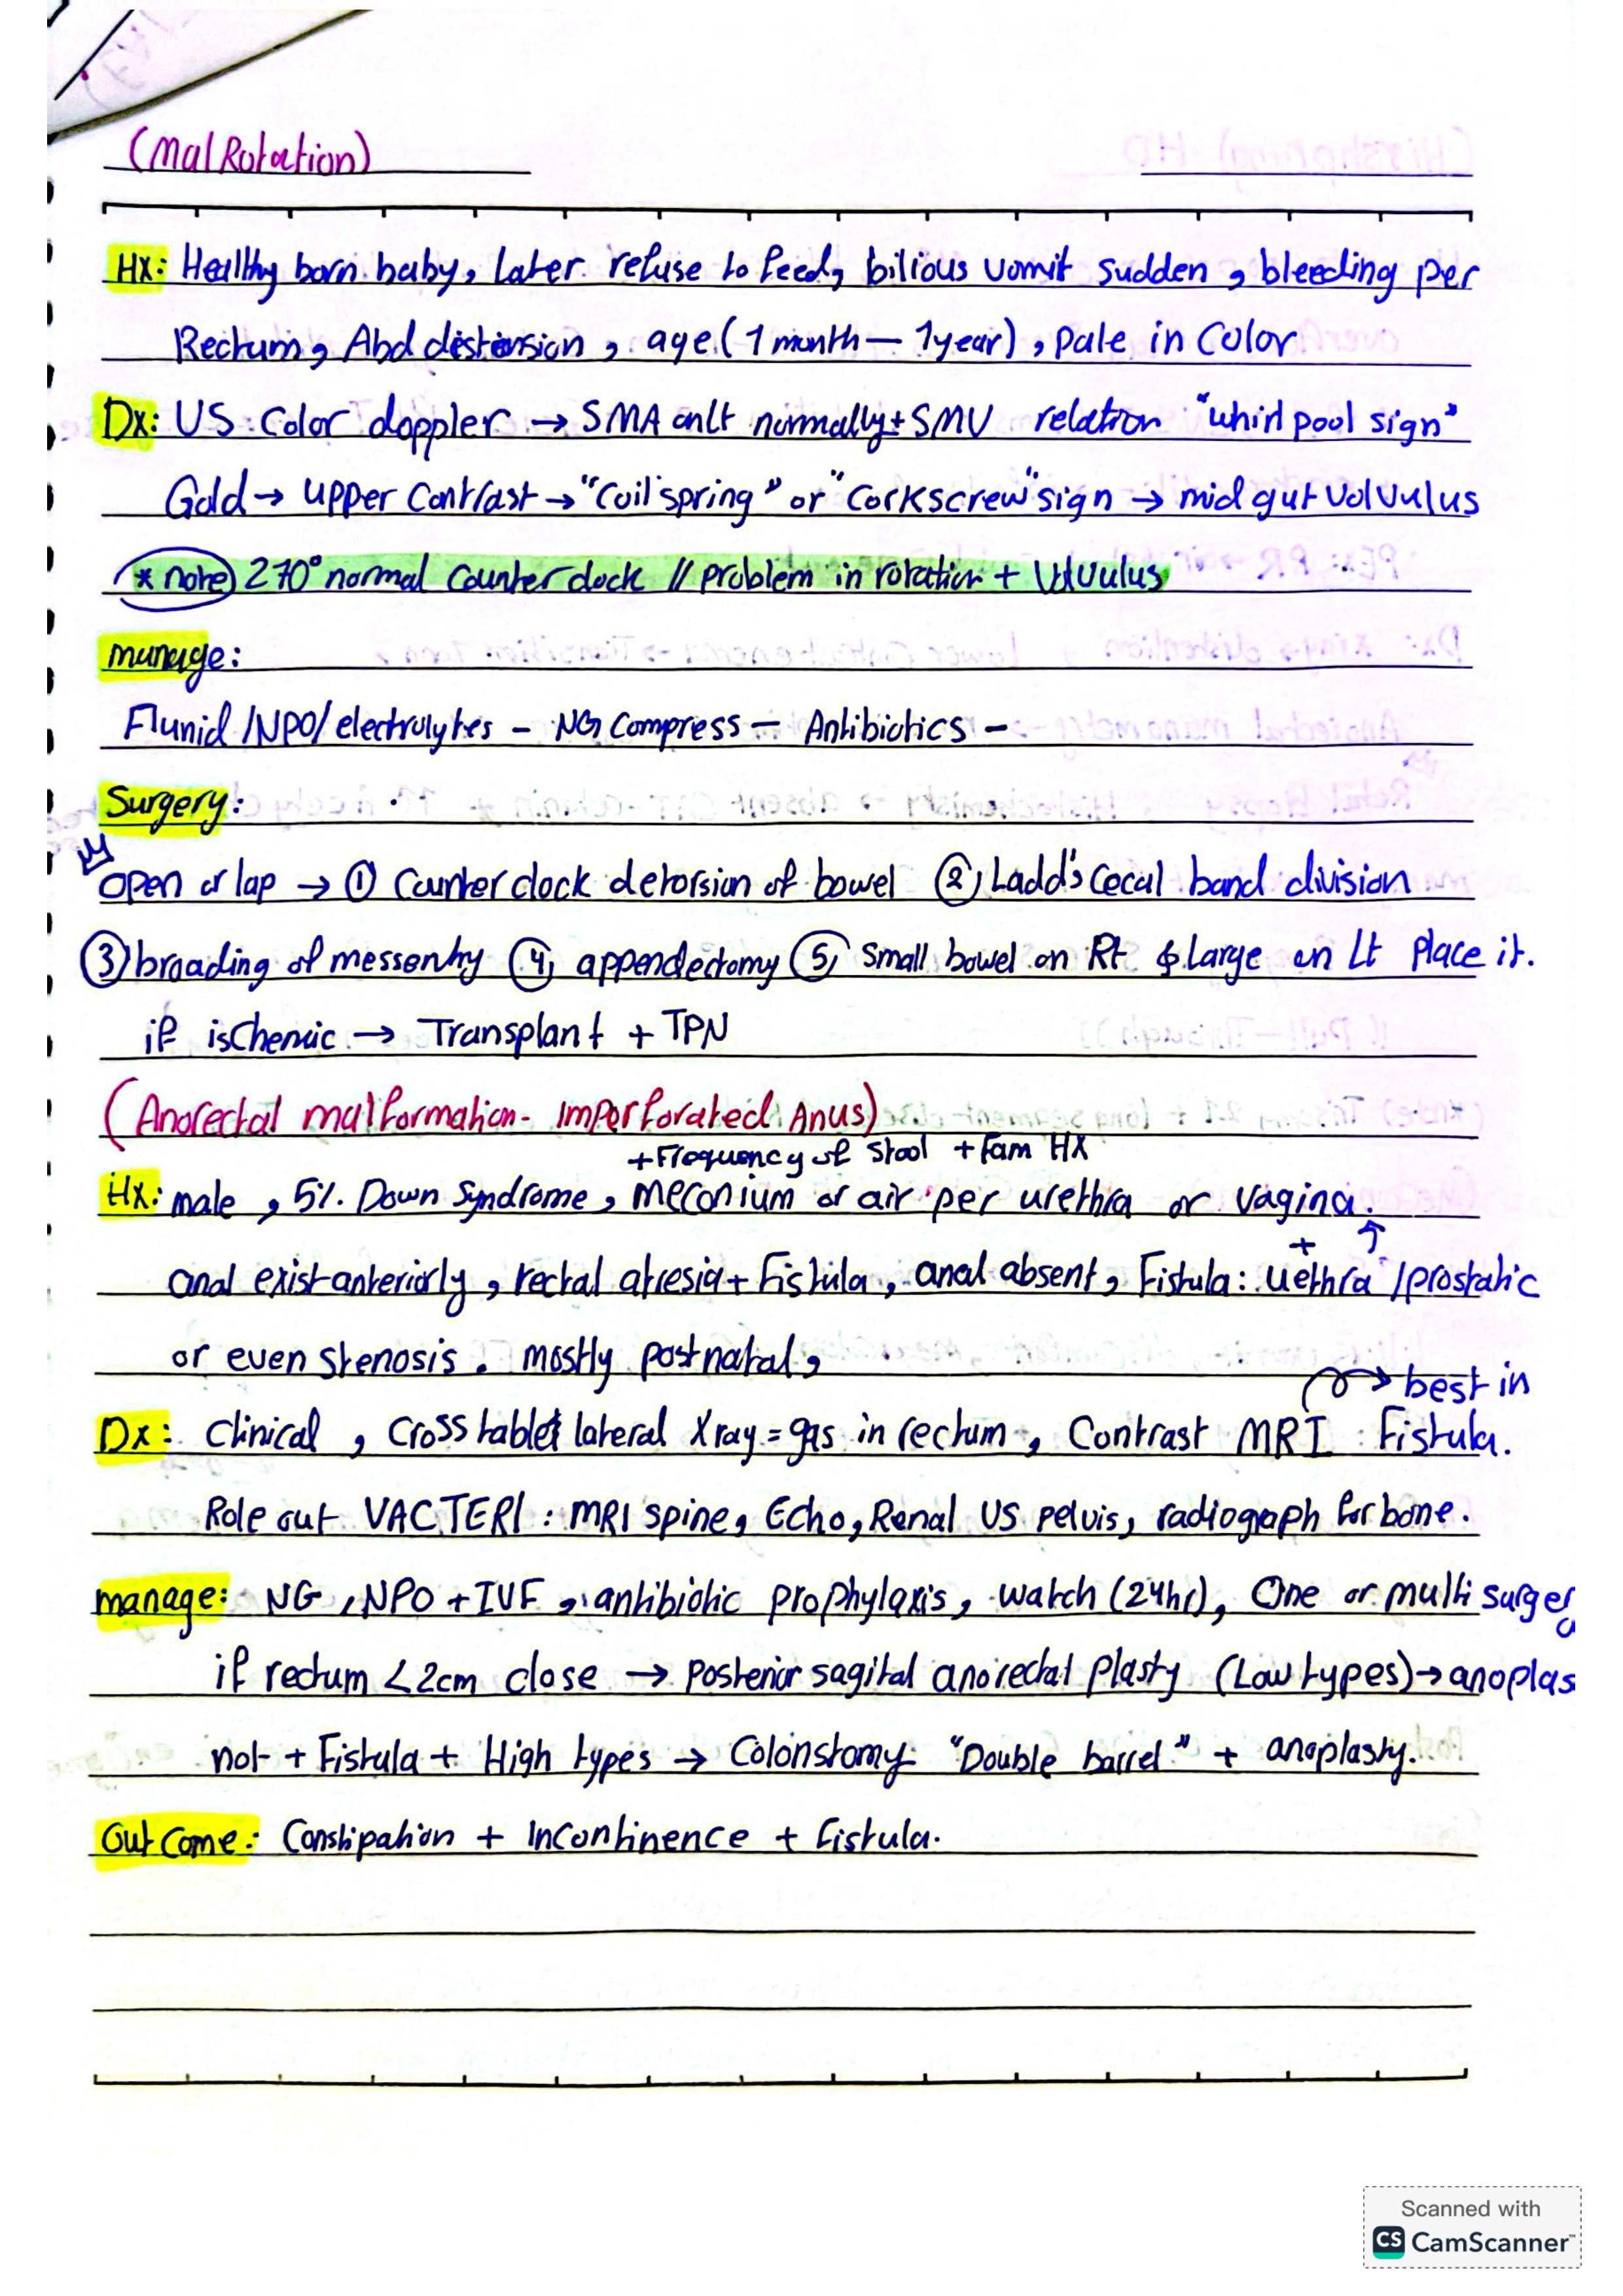 (MalRotation)
Hx: Healthy born baby, Later refuse to feed, bilious vomit sudden, bleeding per
Rectum, Abd distension, age (1 month – 1 year), pale in Color
Dx: US Color doppler → SMA onlt normally + SMV relation "whirl pool sign"
Gold → upper Contrast → "Coil spring" or "Corkscrew" sign → midgut Volvulus
*note) 270° normal Counter clock // problem in rotation + Volvulus
manage:
Flunid/NPO/electrolytes – NG Compress – Antibiotics –
Surgery:
open or lap → ① Counter clock detorsion of bowel ② Ladd's Cecal band division
③ broading of messentry ④ appendectomy ⑤ Small bowel on Rt & large on Lt Place it.
if ischemic → Transplant + TPN
(Anorectal malformation- Imperforated Anus)
+Frequency of Stool + Fam HX
Hx: male, 5% Down Syndrome, meconium or air per urethra or vagina.
anal exist anteriorly, rectal atresia + Fistula, anal absent, Fistula: uethra /prostatic
+ ↑
or even stenosis. mostly postnatal,
→ best in
Dx: Clinical, Cross tablet lateral Xray = gas in rectum, Contrast MRI Fistula.
Role out VACTERl: MRI spine, Echo, Renal US pelvis, radiograph for bone.
manage: NG, NPO + IVF, antibiotic prophylaxis, watch (24hr), One or multi surgery
if rectum <2cm close → Posterior sagital anorectal plasty (Low types) → anoplas
not + Fistula + High types → Colonstomy "Double barrel" + anoplasty.
OutCome: Constipation + Incontinence + Fistula.
Scanned with
CS CamScanner™